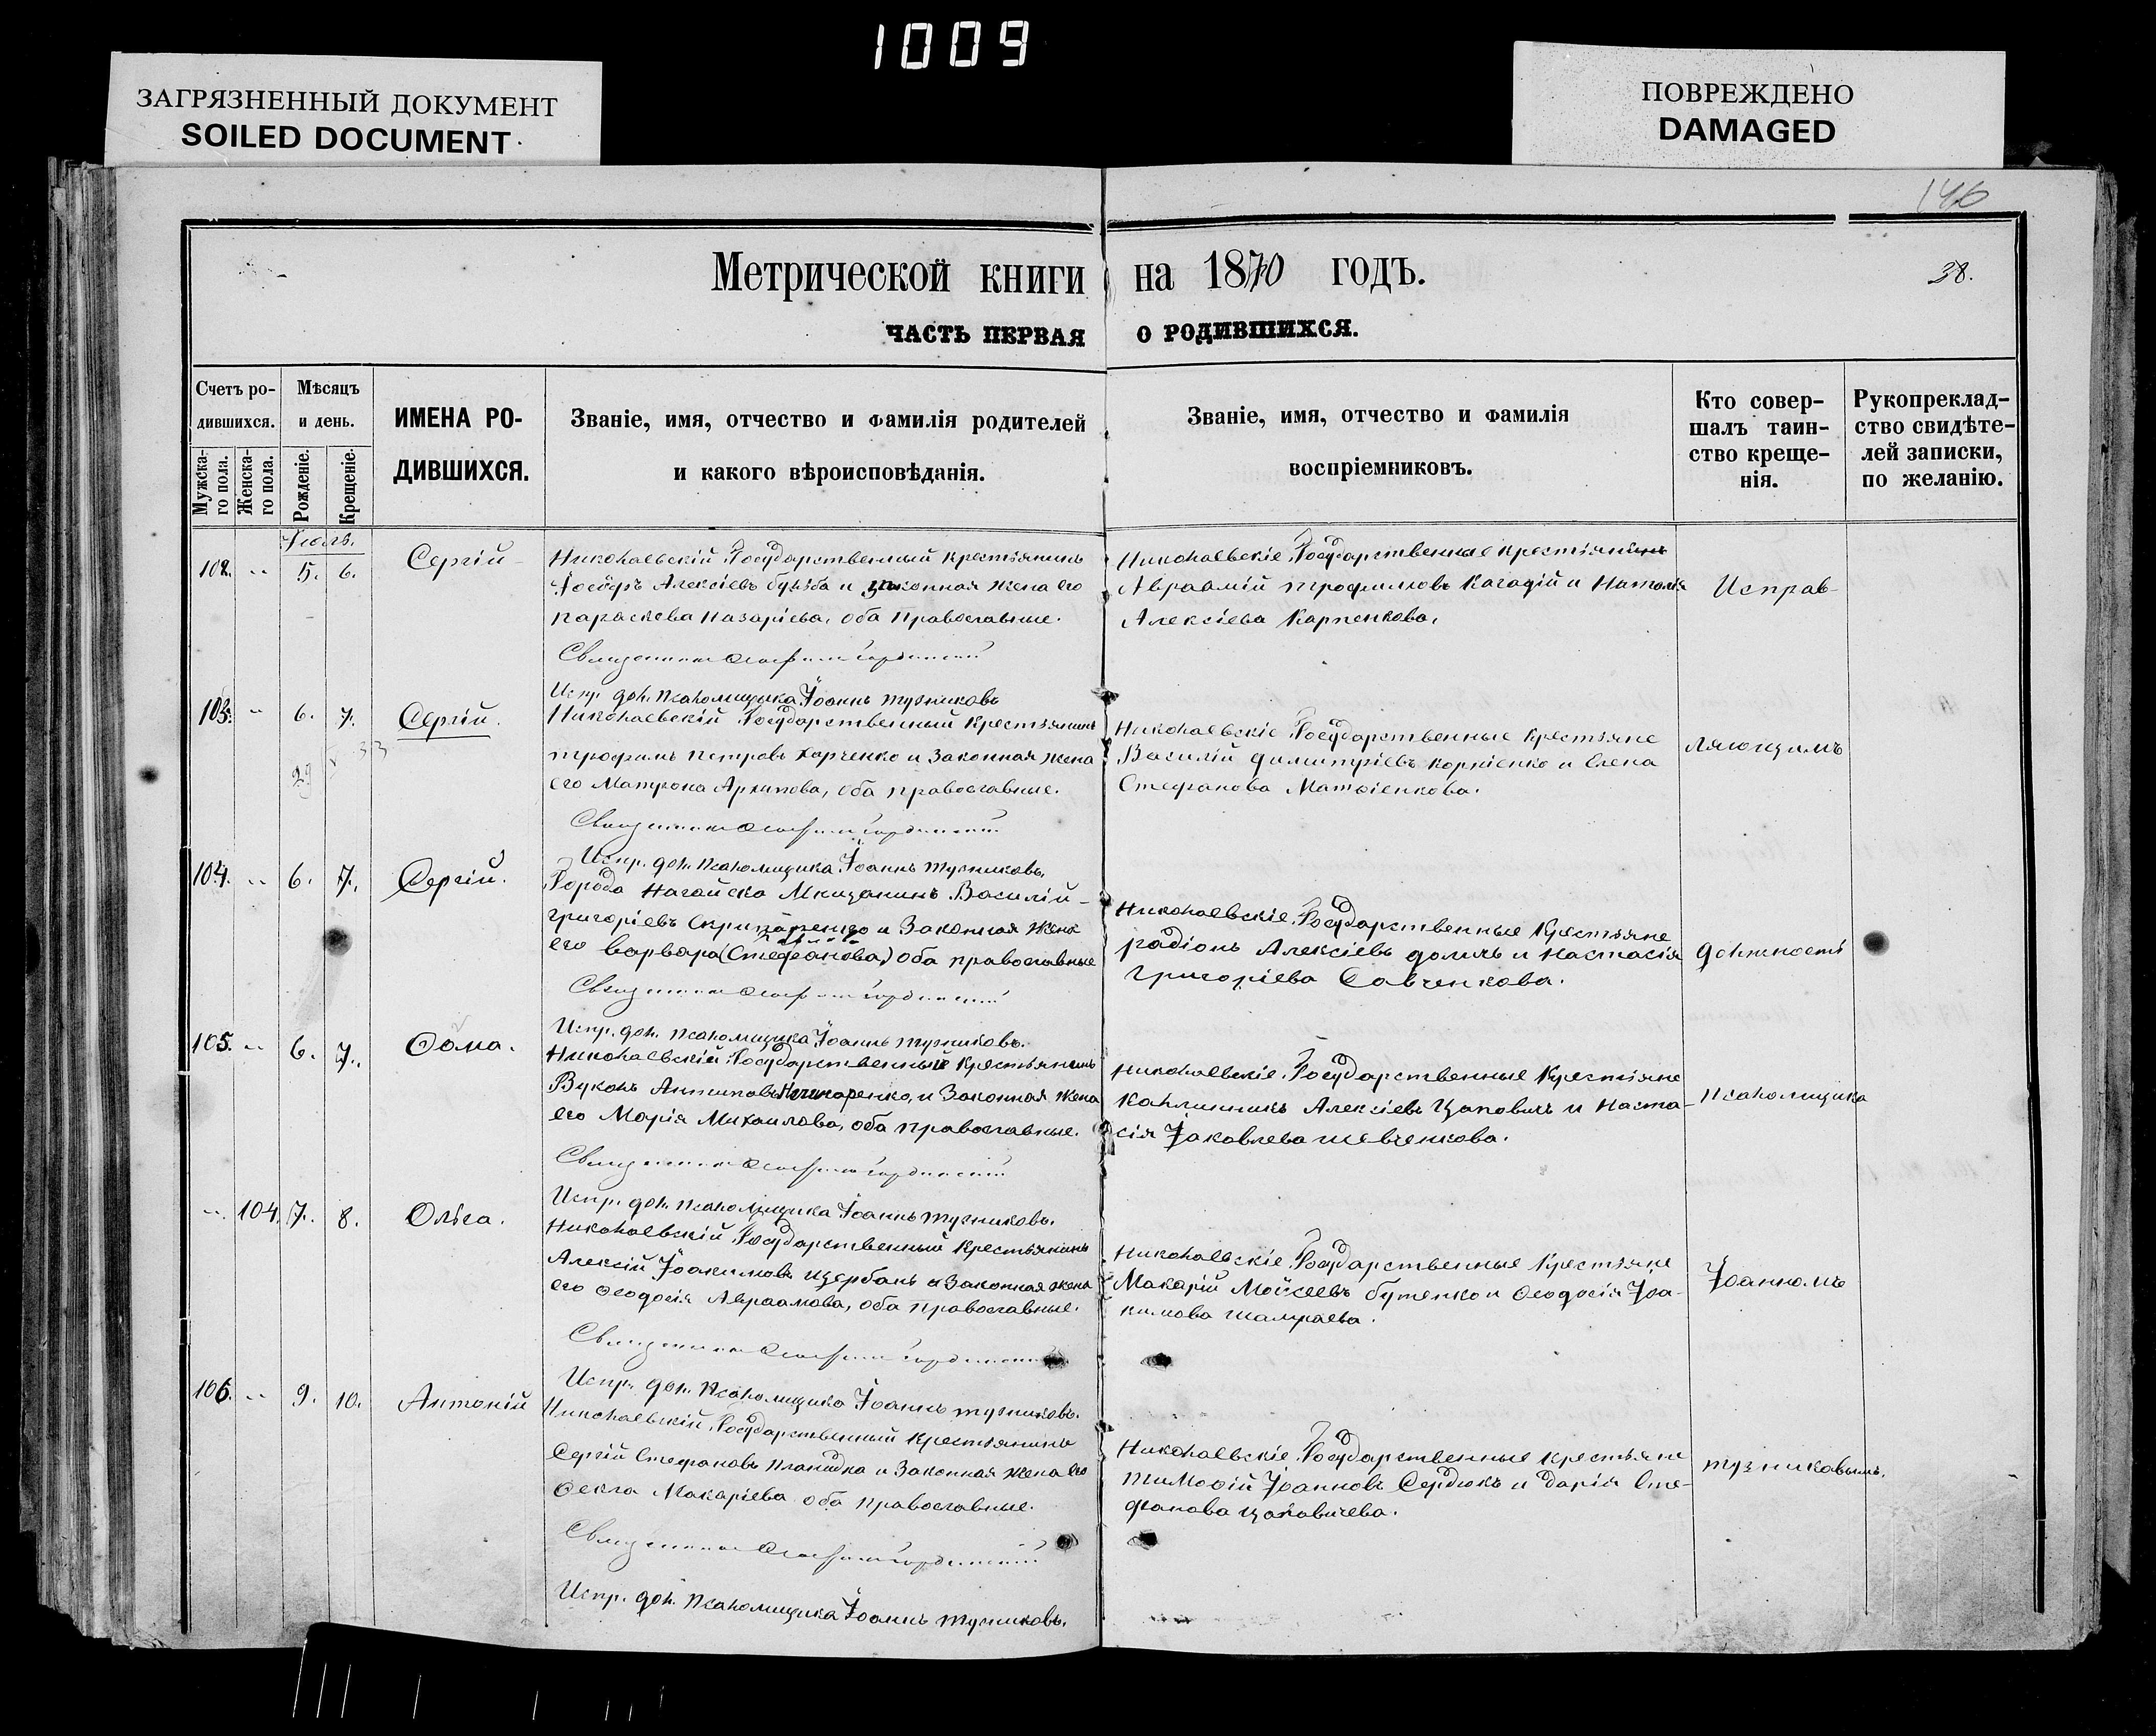 1009
ЗАГРЯЗНЕННЫЙ ДОКУМЕНТ
SOILED DOCUMENT
ПОВРЕЖДЕНО
DAMAGED
146
Метрической книги на 1870 годъ.
38.
ЧАСТЬ ПЕРВАЯ О РОДИВШИХСЯ.
Счетъ ро-
дившихся.
Мужска-
го пола.
Женска-
го пола.
Мѣсяцъ
и день.
Рожденіе.
Крещеніе.
ИМЕНА РО-
ДИВШИХСЯ.
Званіе, имя, отчество и фамилія родителей
и какого вѣроисповѣданія.
Званіе, имя, отчество и фамилія
воспріемниковъ.
Кто совер-
шалъ таин-
ство креще-
нія.
Рукопреклад-
ство свидѣте-
лей записки,
по желанію.
Іюль.
102. " 5. 6. Сергій
Николаевскій Государственный крестьянинъ
Алексіевъ и законная жена его
Параскева Назаріева, оба православные.
Николаевскіе Государственные крестьяне
Авраамій Трофимовъ и Наталія
Алексіева Карпенкова.
Исправ-
Священник
Испр. дол. псаломщика Іоаннъ
103. " 6. 7. Сергій.
Николаевскій Государственный крестьянинъ
Трофимъ Петровъ Харченко и законная жена
его Матрона Архипова, оба православные.
Николаевскіе Государственные крестьяне
Василій Димитріевъ Корніенко и Елена
Стефанова Матвіенкова.
ляющимъ
29 33
Священник
Испр. дол. псаломщика Іоаннъ
104. " 6. 7. Сергій.
Города Ногайска Мѣщанинъ Василій
Григоріевъ и законная жена
его Варвара (Стефанова,) оба православные
Николаевскіе Государственные крестьяне
Радіонъ Алексіевъ и Настасія
Григоріева Савченкова.
должность
Священник
Испр. дол. псаломщика Іоаннъ
105. " 6. 7. Ѳома.
Николаевскій Государственный крестьянинъ
Вуколъ Антиповъ и законная жена
его Марія Михаилова, оба православные.
Николаевскіе Государственные крестьяне
Каллиникъ Алексіевъ Цаповичъ и Наста-
сія Іаковлева Шевченкова.
псаломщика
Священник
Испр. дол. псаломщика Іоаннъ
" 104. 7. 8. Ольга.
Николаевскій Государственный крестьянинъ
Алексій Іоакимовъ Щербань и законная жена
его Ѳеодосія Авраамова, оба православные.
Николаевскіе Государственные крестьяне
Макарій Мойсеевъ Бутенко и Ѳеодосія Іоа-
кимова Шамраева.
Іоанномъ
Священник
Испр. дол. псаломщика Іоаннъ
106. " 9. 10. Антоній
Николаевскій Государственный крестьянинъ
Сергій Стефановъ и законная жена его
Ѳекла Макаріева оба православные.
Николаевскіе Государственные крестьяне
Тимоѳій Іоанновъ Сердюкъ и Дарія Сте-
фанова Цаповичева.
Священник
Испр. дол. псаломщика Іоаннъ